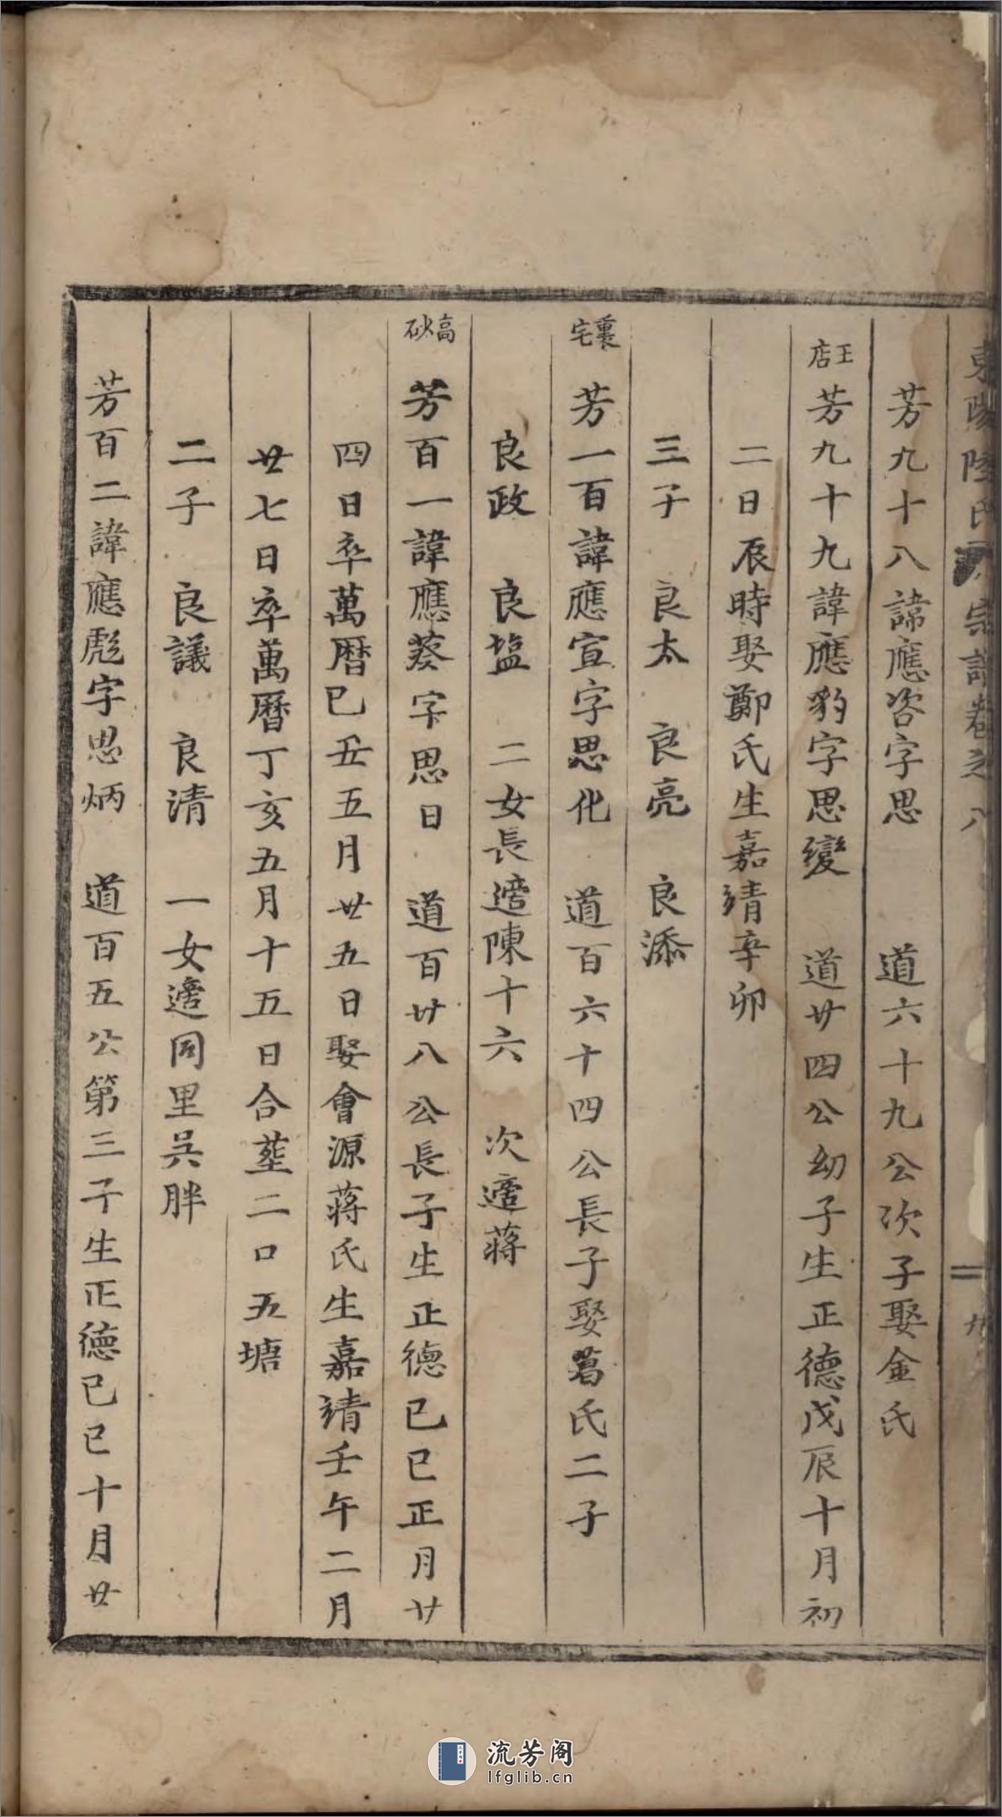 東陽陸氏宗譜卷之八
芳九十八諱應咨字思 道六十九公次子娶金氏
王店
芳九十九諱應豹字思變 道廿四公幼子生正德戊辰十月初
二日辰時娶鄭氏生嘉靖辛卯
三子 良太 良亮 良添
裏宅
芳一百諱應宣字思化 道百六十四公長子娶葛氏二子
良政 良塩 二女長適陳十六 次適蔣
高砂
芳百一諱應葵字思日 道百廿八公長子生正德己巳正月廿
四日卒萬曆己丑五月廿五日娶會源蔣氏生嘉靖壬午二月
廿七日卒萬曆丁亥五月十五日合塟二口五塘
二子 良議 良清 一女適同里吳胖
芳百二諱應彪字思炳 道百五公第三子生正德己巳十月廿
流芳阁
lfglib.cn